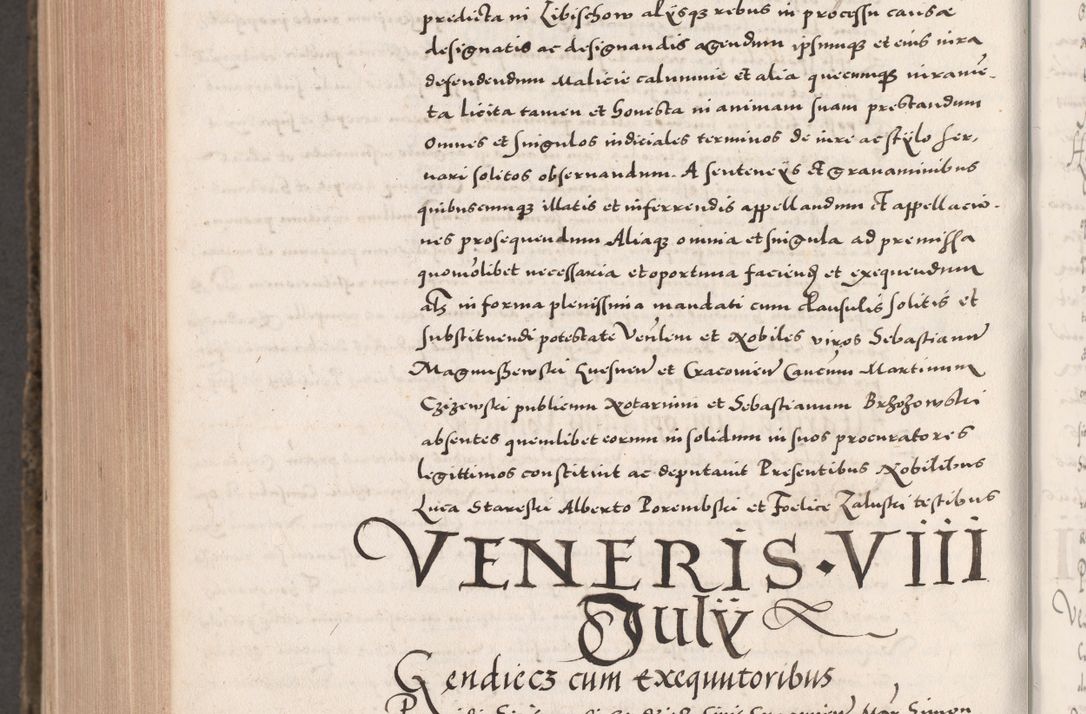 predicta in Libischow alÿsqz rebus in processu causæ
designatis ac designandis agendum ipsumqz et eius iura
defendendum Malicie calumnie et alia quecumqz iurame-
ta licita tamen et honesta in animam suam prestandum
Omnes et singulos iudiciales terminos de iure ac stÿlo ser,
uari solitos obseruandum. A sentencÿs et grauaminibus
quibuscumqz illatis et inferrendis appellandum et appellacio-
nes prosequendum Aliaqz omnia et singula ad premissa
quomolibet necessaria et oportuna faciend et exequendum
in forma plenissima mandati cum clausulis solitis et
substituendi potestate Venlem et Nobiles viros Sebastianum
Magnuszewski et Cracouien Canicum Martinum
Czizewski publicum Notarium et Sebastianum Brzozowski
absentes quemlibet eorum in solidum in suos procuratores
legittimos constituit ac deputauit Presentibus Nobilibus
Luca Stareski Alberto Porembski et Foelice Zaluski testibus
VENERIS · VIII
Julÿ
Gendiecz cum exequutoribus